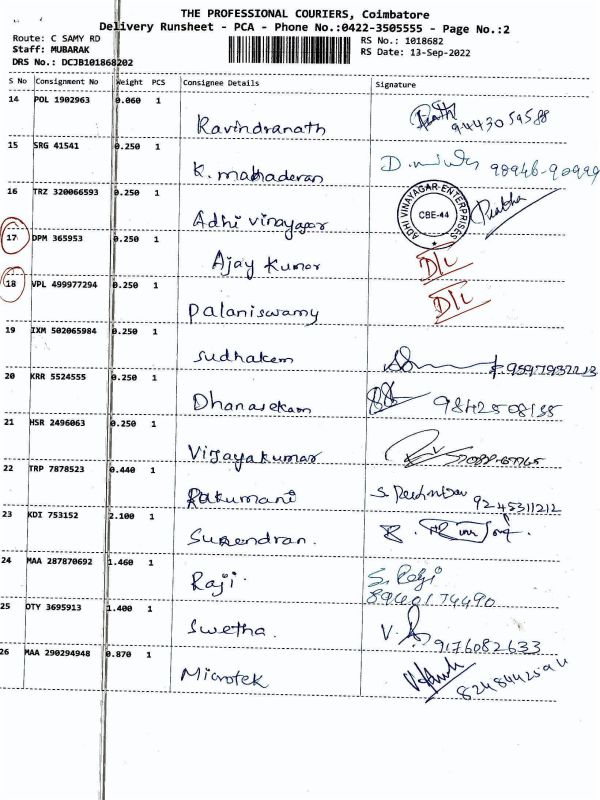 THE PROFESSIONAL COURIERS, Coimbatore
Delivery Runsheet - PCA - Phone No.:0422-3505555 - Page No.:2
Route: C SAMY RD
RS No.: 1018682
Staff: MUBARAK
RS Date: 13-Sep-2022
DRS No.: DCJB101868202
S No Consignment No Weight PCS Consignee Details Signature
14 POL 1902963 0.060 1 Ravindranath 9443059588
15 SRG 41541 0.250 1 K. mahaderan
16 TRZ 320066593 0.250 1 Adhi vinayagar ADHI VINAYAGAR ENTERPRISES CBE-44 Prabha
17 DPM 365953 0.250 1 Ajay Kumar D/L
18 VPL 499977294 0.250 1 palaniswamy D/L
19 IXM 502065984 0.250 1 sudhakem
20 KRR 5524555 0.250 1 Dhanasekam
21 HSR 2496063 0.250 1 Vijayakumar
22 TRP 7878523 0.440 1 Rakumani 9245311212
23 KDI 753152 2.100 1 Surendran.
24 MAA 287870692 1.460 1 Raji. S. Raji
8940174490
25 OTY 3695913 1.400 1 Swetha. 9176082633
26 MAA 290294948 0.870 1 Microtek